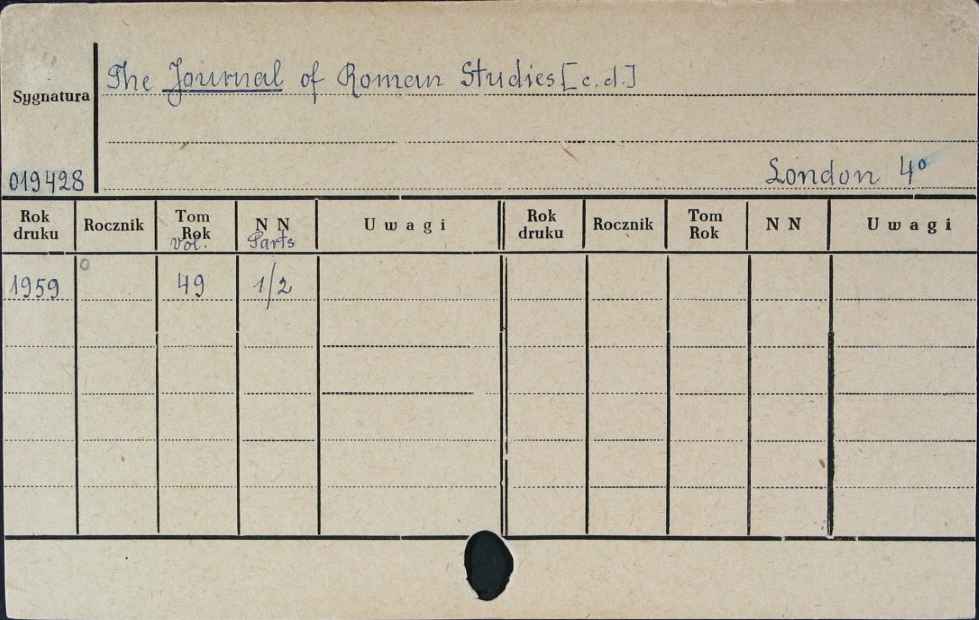 The Journal of Roman Studies [c.d.]
Sygnatura
London 4°
019428
Rok druku Rocznik Tom Rok N N Uwagi Rok druku Rocznik Tom Rok N N Uwagi
Vol. Parts
1959 49 1/2